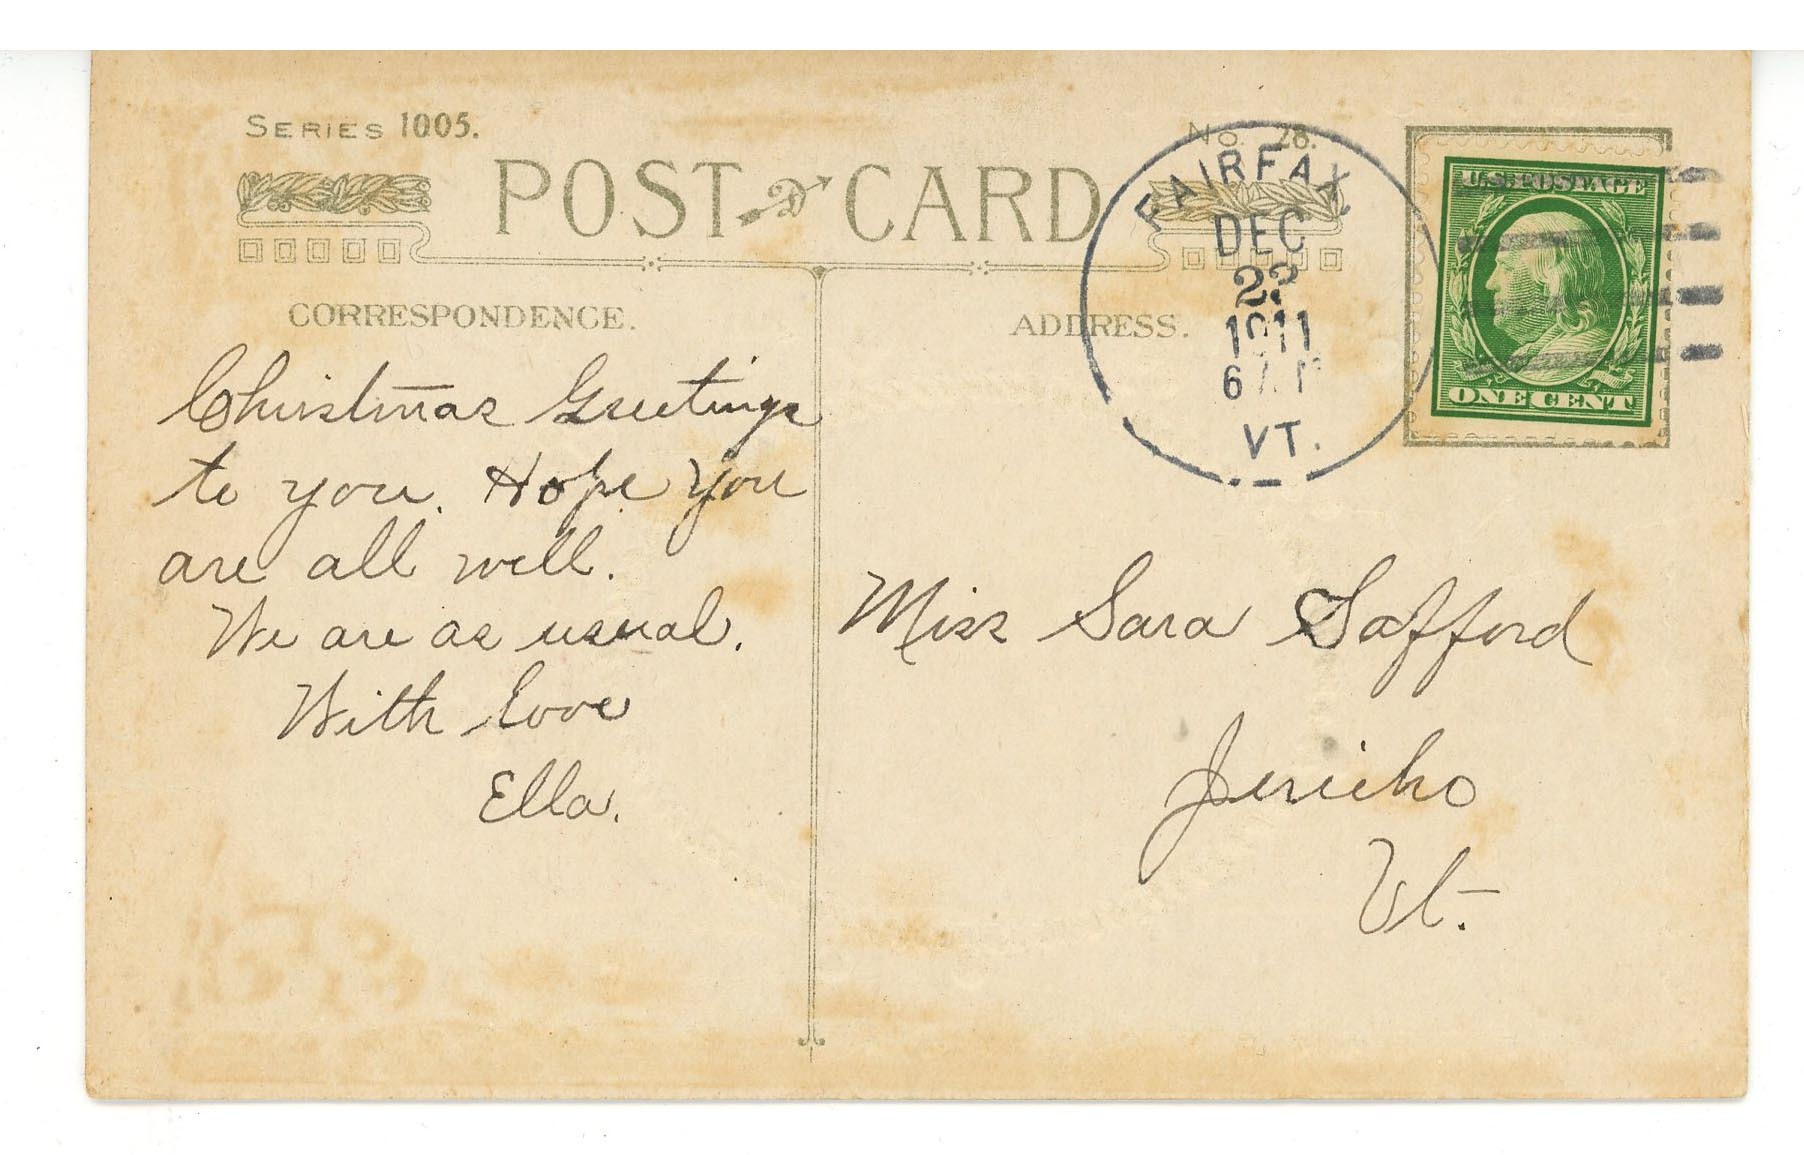 SERIES 1005.
No. 28.
POST CARD
CORRESPONDENCE.
ADDRESS.
FAIRFAX
DEC
1911
6
VT.
U.S. POSTAGE
ONE CENT
Christmas Greetings
to you. Hope you
are all well.
We are as usual.
With love
Ella.
Miss Sara Safford
Jericho
Vt.